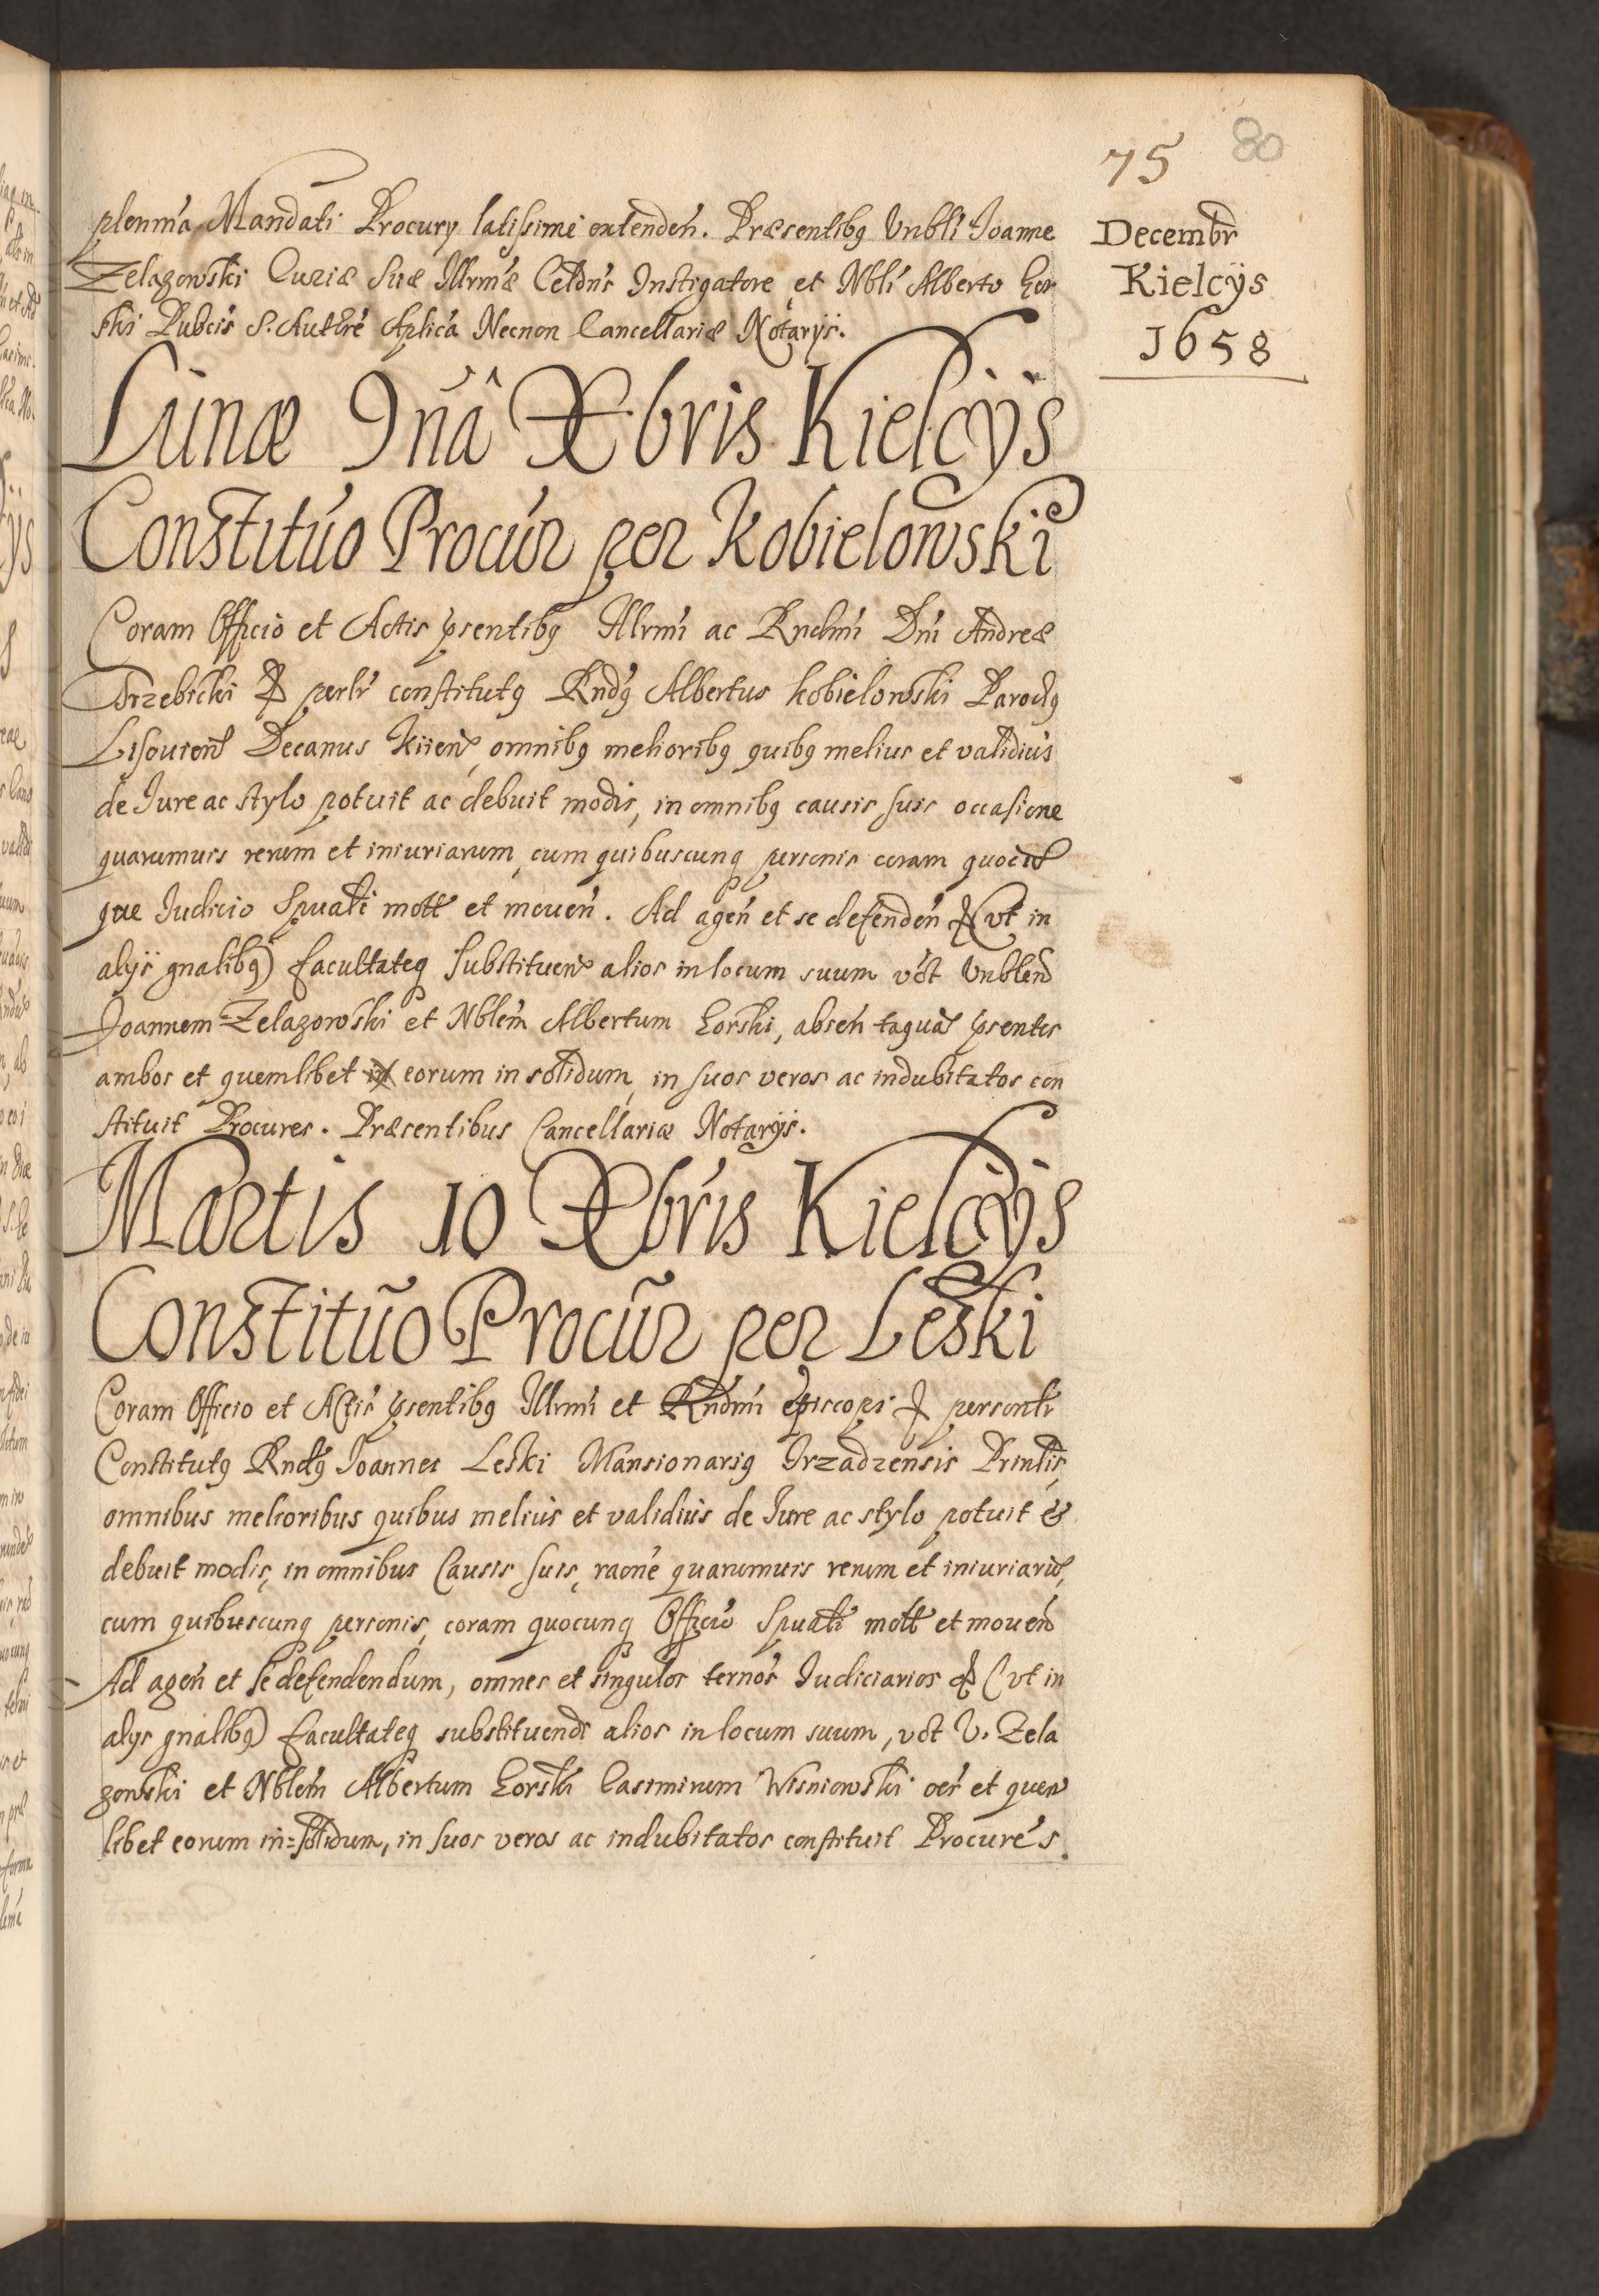 75 80
Decembr
Kielcÿs
1658
plenm̃a Mandati Procury latissime extendeń. Præsentibq Vnbłi Joanne
Zelazowski Curiæ Suæ Illrmæ Celdnis Instigatore et Nbłi Alberto Gor
ski Publcis S. Authre Aplica Necnon Cancellariæ Notarÿs.
Lunæ 9nâ Xbris Kielcÿs
Constitúo Procúr per Kobielowski
Coram Officio et Actis psentibq Illrmi ac Rndmi Dni Andreæ
Trzebicki & perlr constitutq Rndq Albertus Kobielowski Parochq
Lisouien Decanus Kiien, omnibq melioribq quibq melius et validius
de Jure ac stylo potuit ac debuit modis, in omnibq causis suis occasione
quarumuis rerum et iniuriarum, cum quibuscunq personis coram quocun
que Judicio Spuali mott et mouen. Ad agen et se defenden & (vt in
alÿs gnalibq) facultateq Substituen alios in locum suum vct Vnblem
Joannem Zelazowski et Nblem Albertum Gorski, absen taqua psentes
ambos et quemlibet eorum in solidum, in suos veros ac indubitatos con
stituit Procures. Præsentibus Cancellariæ Notarÿs.
Martis 10 Xbris Kielcÿs
Constitũo Procũr per Leski
Coram Officio et Actis psentibq Illrmi et Rndmi Episcopi & personlr
Constitutq Rndq Joannes Leski Mansionariq Irzadzensis Prinlis,
omnibus melioribus quibus melius et validius de Jure ac stylo potuit &
debuit modis, in omnibus Causis suis, raone quarumuis rerum et iniuriaru,
cum quibuscunq personis, coram quocunq Officio Spuali mott et mouen
Ad agen et se defendendum, omnes et singulos ternos Judiciarios & (vt in
alys gnalibq) facultateq substituendi alios in locum suum, vct V. Zela
zowski et Nblem Albertum Gorski Casimirum Wisniowski oes et quem
libet eorum in=solidum, in suos veros ac indubitatos constituit Procures.